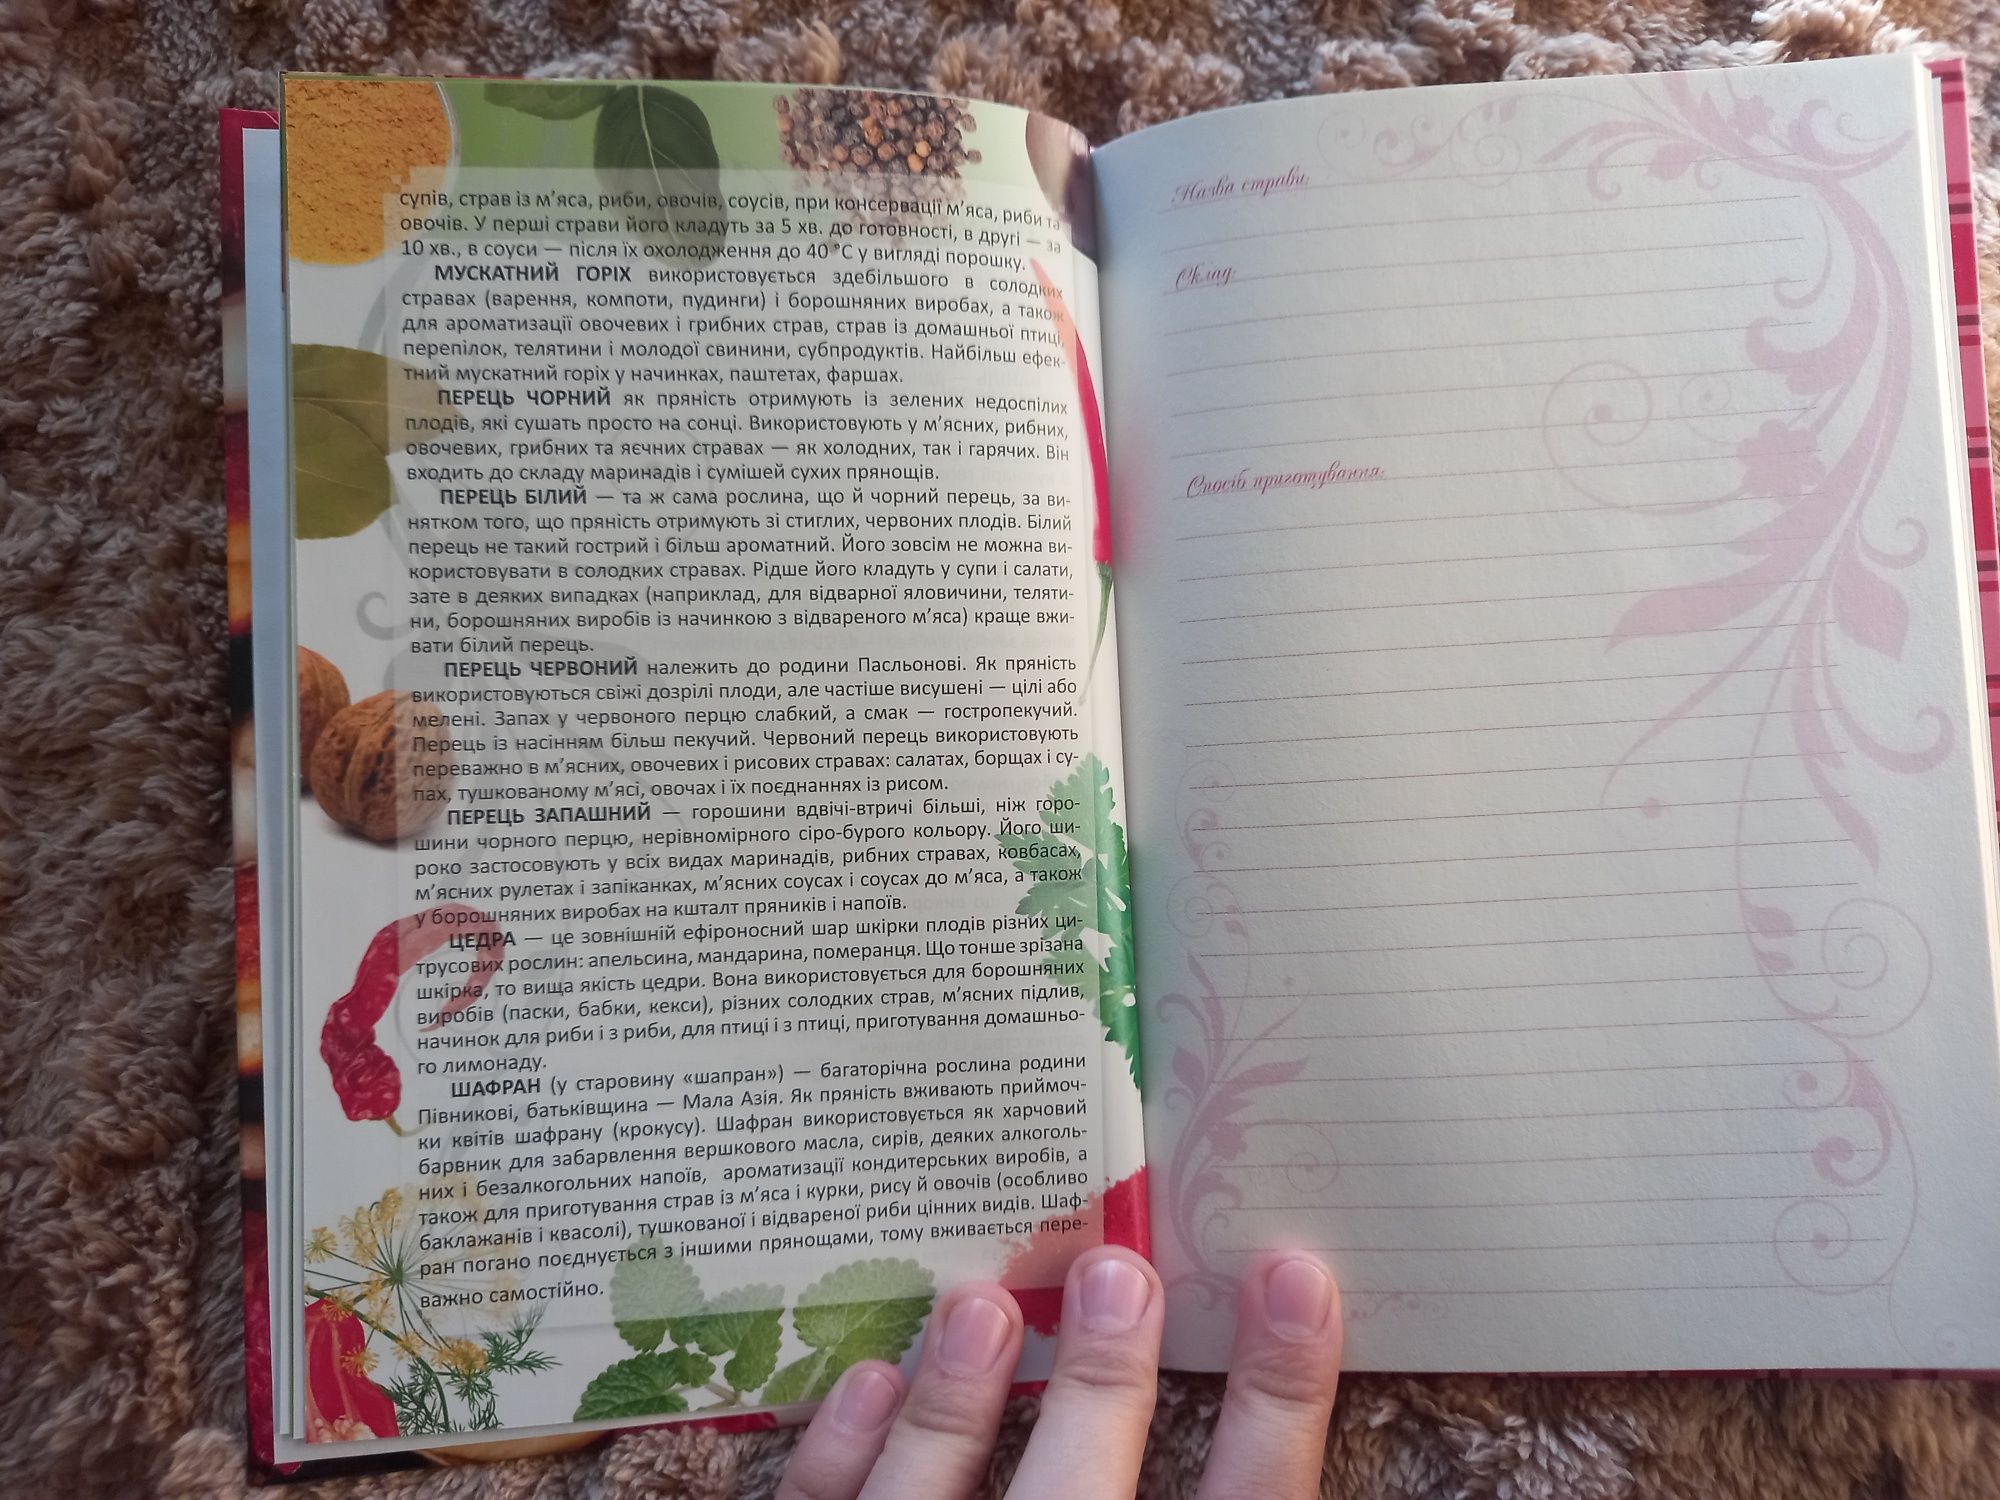 супів, страв із м’яса, риби, овочів, соусів, при консервації м’яса, риби та
овочів. У перші страви його кладуть за 5 хв. до готовності, в другі — за
10 хв., в соуси — після їх охолодження до 40 °С у вигляді порошку.
МУСКАТНИЙ ГОРІХ використовується здебільшого в солодких
стравах (варення, компоти, пудинги) і борошняних виробах, а також
для ароматизації овочевих і грибних страв, страв із домашньої птиці,
перепілок, телятини і молодої свинини, субпродуктів. Найбільш ефек-
тний мускатний горіх у начинках, паштетах, фаршах.
ПЕРЕЦЬ ЧОРНИЙ як пряність отримують із зелених недоспілих
плодів, які сушать просто на сонці. Використовують у м’ясних, рибних,
овочевих, грибних та яєчних стравах — як холодних, так і гарячих. Він
входить до складу маринадів і сумішей сухих прянощів.
ПЕРЕЦЬ БІЛИЙ — та ж сама рослина, що й чорний перець, за ви-
нятком того, що пряність отримують зі стиглих, червоних плодів. Білий
перець не такий гострий і більш ароматний. Його зовсім не можна ви-
користовувати в солодких стравах. Рідше його кладуть у супи і салати,
зате в деяких випадках (наприклад, для відварної яловичини, теляти-
ни, борошняних виробів із начинкою з відвареного м’яса) краще вжи-
вати білий перець.
ПЕРЕЦЬ ЧЕРВОНИЙ належить до родини Пасльонові. Як пряність
використовуються свіжі дозрілі плоди, але частіше висушені — цілі або
мелені. Запах у червоного перцю слабкий, а смак — гостропекучий.
Перець із насінням більш пекучий. Червоний перець використовують
переважно в м’ясних, овочевих і рисових стравах: салатах, борщах і су-
пах, тушкованому м’ясі, овочах і їх поєднаннях із рисом.
ПЕРЕЦЬ ЗАПАШНИЙ — горошини вдвічі-втричі більші, ніж горо-
шини чорного перцю, нерівномірного сіро-бурого кольору. Його ши-
роко застосовують у всіх видах маринадів, рибних стравах, ковбасах,
м’ясних рулетах і запіканках, м’ясних соусах і соусах до м’яса, а також
у борошняних виробах на кшталт пряників і напоїв.
ЦЕДРА — це зовнішній ефіроносний шар шкірки плодів різних ци-
трусових рослин: апельсина, мандарина, померанця. Що тонше зрізана
шкірка, то вища якість цедри. Вона використовується для борошняних
виробів (паски, бабки, кекси), різних солодких страв, м’ясних підлив,
начинок для риби і з риби, для птиці і з птиці, приготування домашньо-
го лимонаду.
ШАФРАН (у старовину «шапран») — багаторічна рослина родини
Півникові, батьківщина — Мала Азія. Як пряність вживають приймоч-
ки квітів шафрану (крокусу). Шафран використовується як харчовий
барвник для забарвлення вершкового масла, сирів, деяких алкоголь-
них і безалкогольних напоїв, ароматизації кондитерських виробів, а
також для приготування страв із м’яса і курки, рису й овочів (особливо
баклажанів і квасолі), тушкованої і відвареної риби цінних видів. Шаф-
ран погано поєднується з іншими прянощами, тому вживається пере-
важно самостійно.
Назва страви:
Склад:
Спосіб приготування: